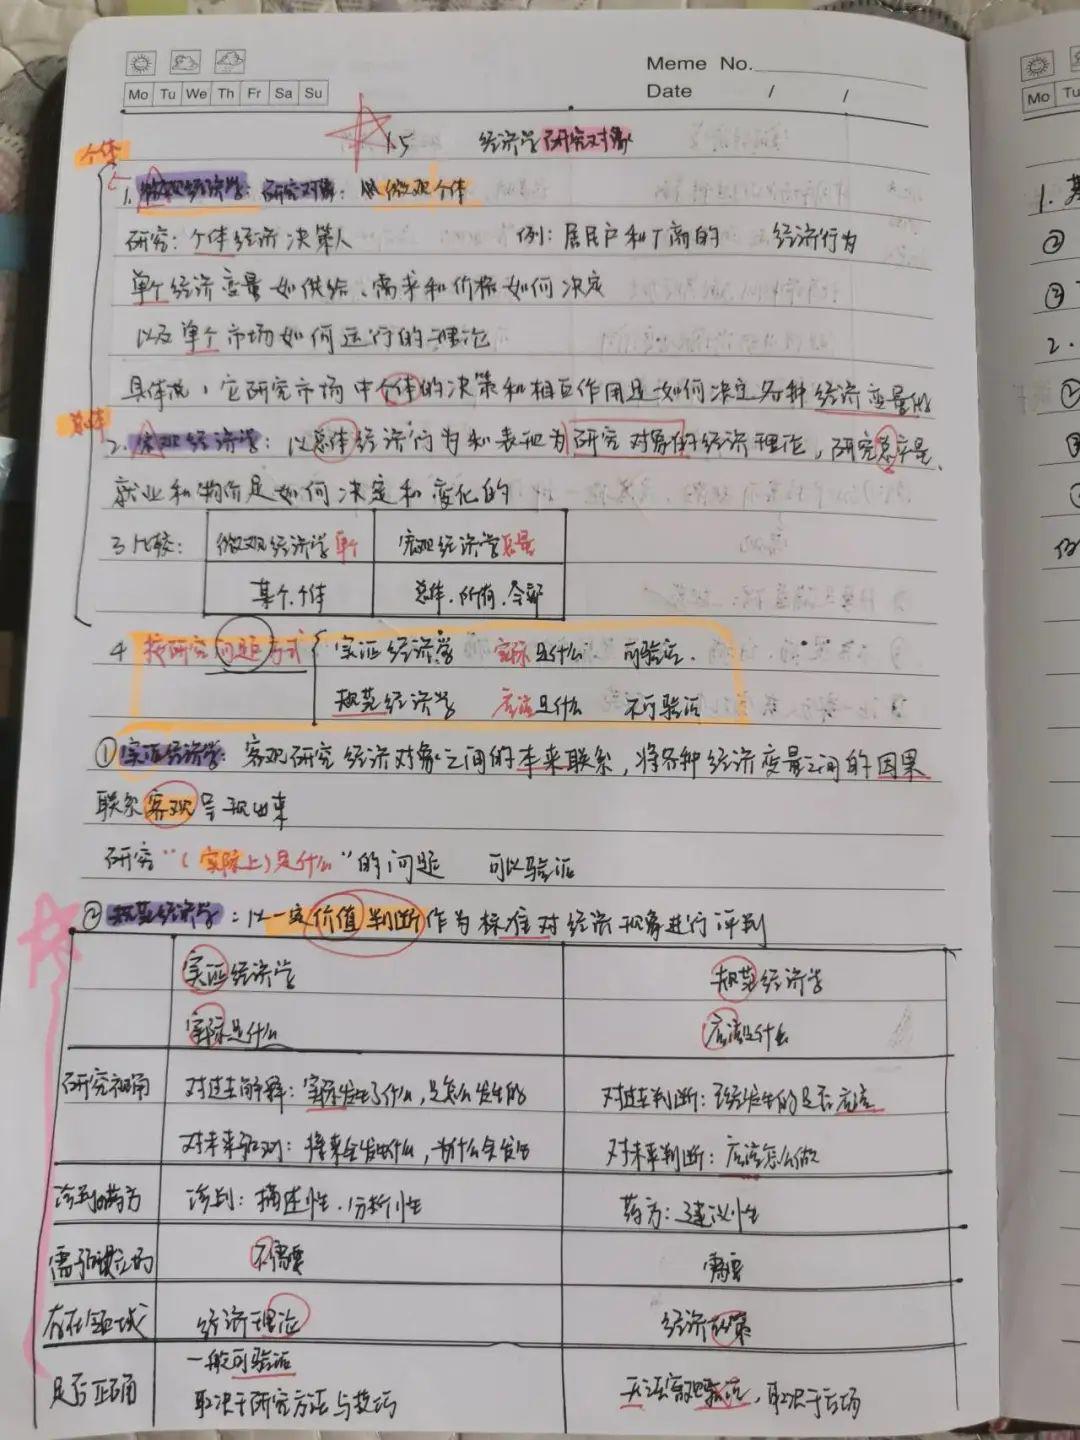 Meme No.
Mo Tu We Th Fr Sa Su
Date / /
Mo Tu
1.5 经济学研究对象
个体
1. 微观经济学：研究对象：从微观个体
研究：个体经济决策人 例：居民户和厂商的 经济行为
单个经济变量如供给、需求和价格如何决定
以及单个市场如何运行的理论
具体说，它研究市场中个体的决策和相互作用是如何决定各种经济变量的
总体
2. 宏观经济学：以总体经济行为和表现为研究对象的经济理论，研究总产量、
就业和物价是如何决定和变化的
3 比较： 微观经济学 单个 宏观经济学 总量
某个、个体 总体、所有、全部
4 按研究问题方式 实证经济学 实际是什么 可验证.
规范经济学 应该是什么 不可验证
① 实证经济学：客观研究经济对象之间的本来联系，将各种经济变量之间的因果
联系客观呈现出来
研究“（实际上）是什么”的问题 可以验证
② 规范经济学：以一定价值判断作为标准对经济现象进行评判
实证经济学 规范经济学
实际是什么 应该是什么
研究视角 对过去解释：实际发生了什么，是怎么发生的 对过去判断：已经发生的是否应该
对未来预测：将来会发生什么，为什么会发生 对未来判断：应该怎么做
诊断or药方 诊断：描述性、分析性 药方：建议性
需预设立场 不需要 需要
存在领域 经济理论 经济政策
是否正确 一般可验证
取决于研究方法与技巧 无法客观验证，取决于立场